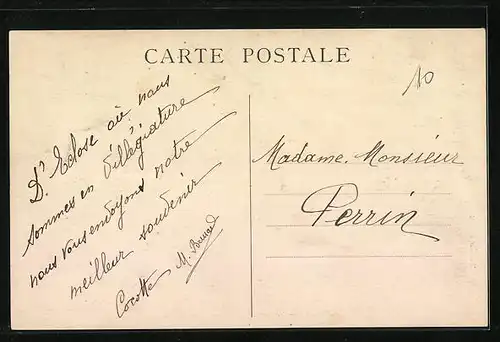 CARTE POSTALE
10
D'Eclose où nous
sommes en villégiature
nous vous envoyons notre
meilleur souvenir
Cocotte M.
Madame. Monsieur
Perrin